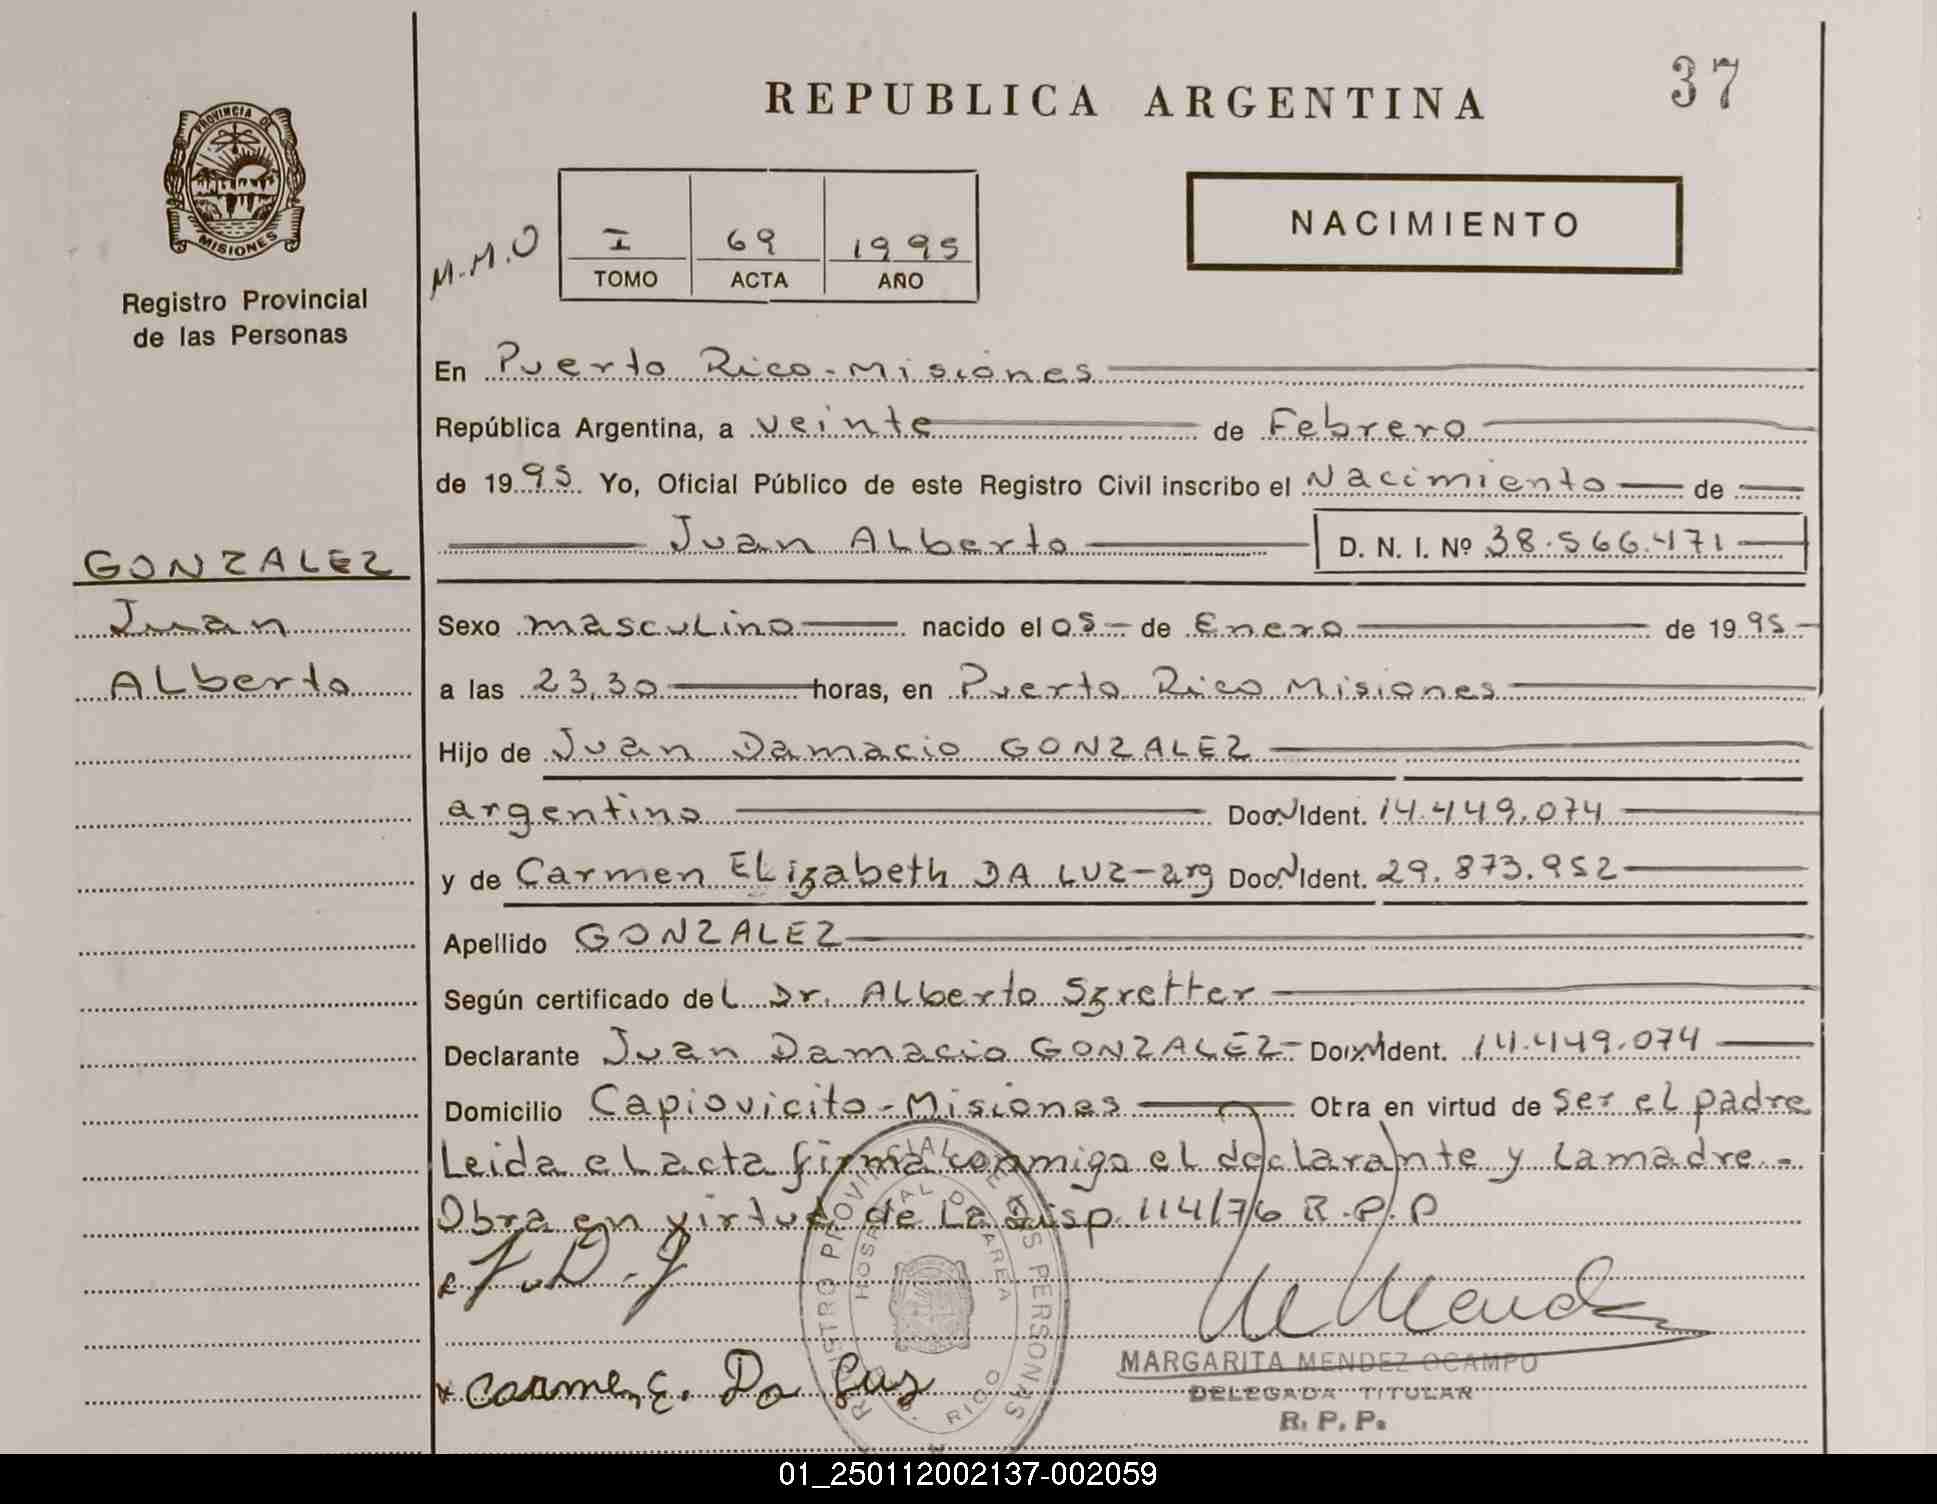 37
REPUBLICA ARGENTINA
PROVINCIA DE
MISIONES
Registro Provincial
de las Personas
NACIMIENTO
M.M.O
I 69 1995
TOMO ACTA AÑO
En Puerto Rico-Misiones
República Argentina, a veinte de Febrero
de 1995 Yo, Oficial Público de este Registro Civil inscribo el Nacimiento de
Juan Alberto D. N. I. Nº 38.566.471
GONZALEZ
Juan
Alberto
Sexo masculino nacido el 05 de Enero de 1995
a las 23,30 horas, en Puerto Rico Misiones
Hijo de Juan Damacio GONZALEZ
argentino Doc.N.Ident. 14.449.074
y de Carmen Elizabeth DA LUZ-arg Doc.N.Ident. 29.873.952
Apellido GONZALEZ
Según certificado del Dr. Alberto Szretter
Declarante Juan Damacio GONZALEZ- Doc.N.Ident. 14.449.074
Domicilio Capiovicito-Misiones Obra en virtud de ser el padre
Leida el acta firma conmigo el declarante y la madre.-
Obra en virtud de la Disp. 114/76 R.P.P
J.D.G
Carmen E. Da Luz
REGISTRO PROVINCIAL DE LAS PERSONAS
HOSPITAL DE AREA
P. RICO
M Mend
MARGARITA MENDEZ OCAMPO
DELEGADA TITULAR
R. P. P.
01_250112002137-002059